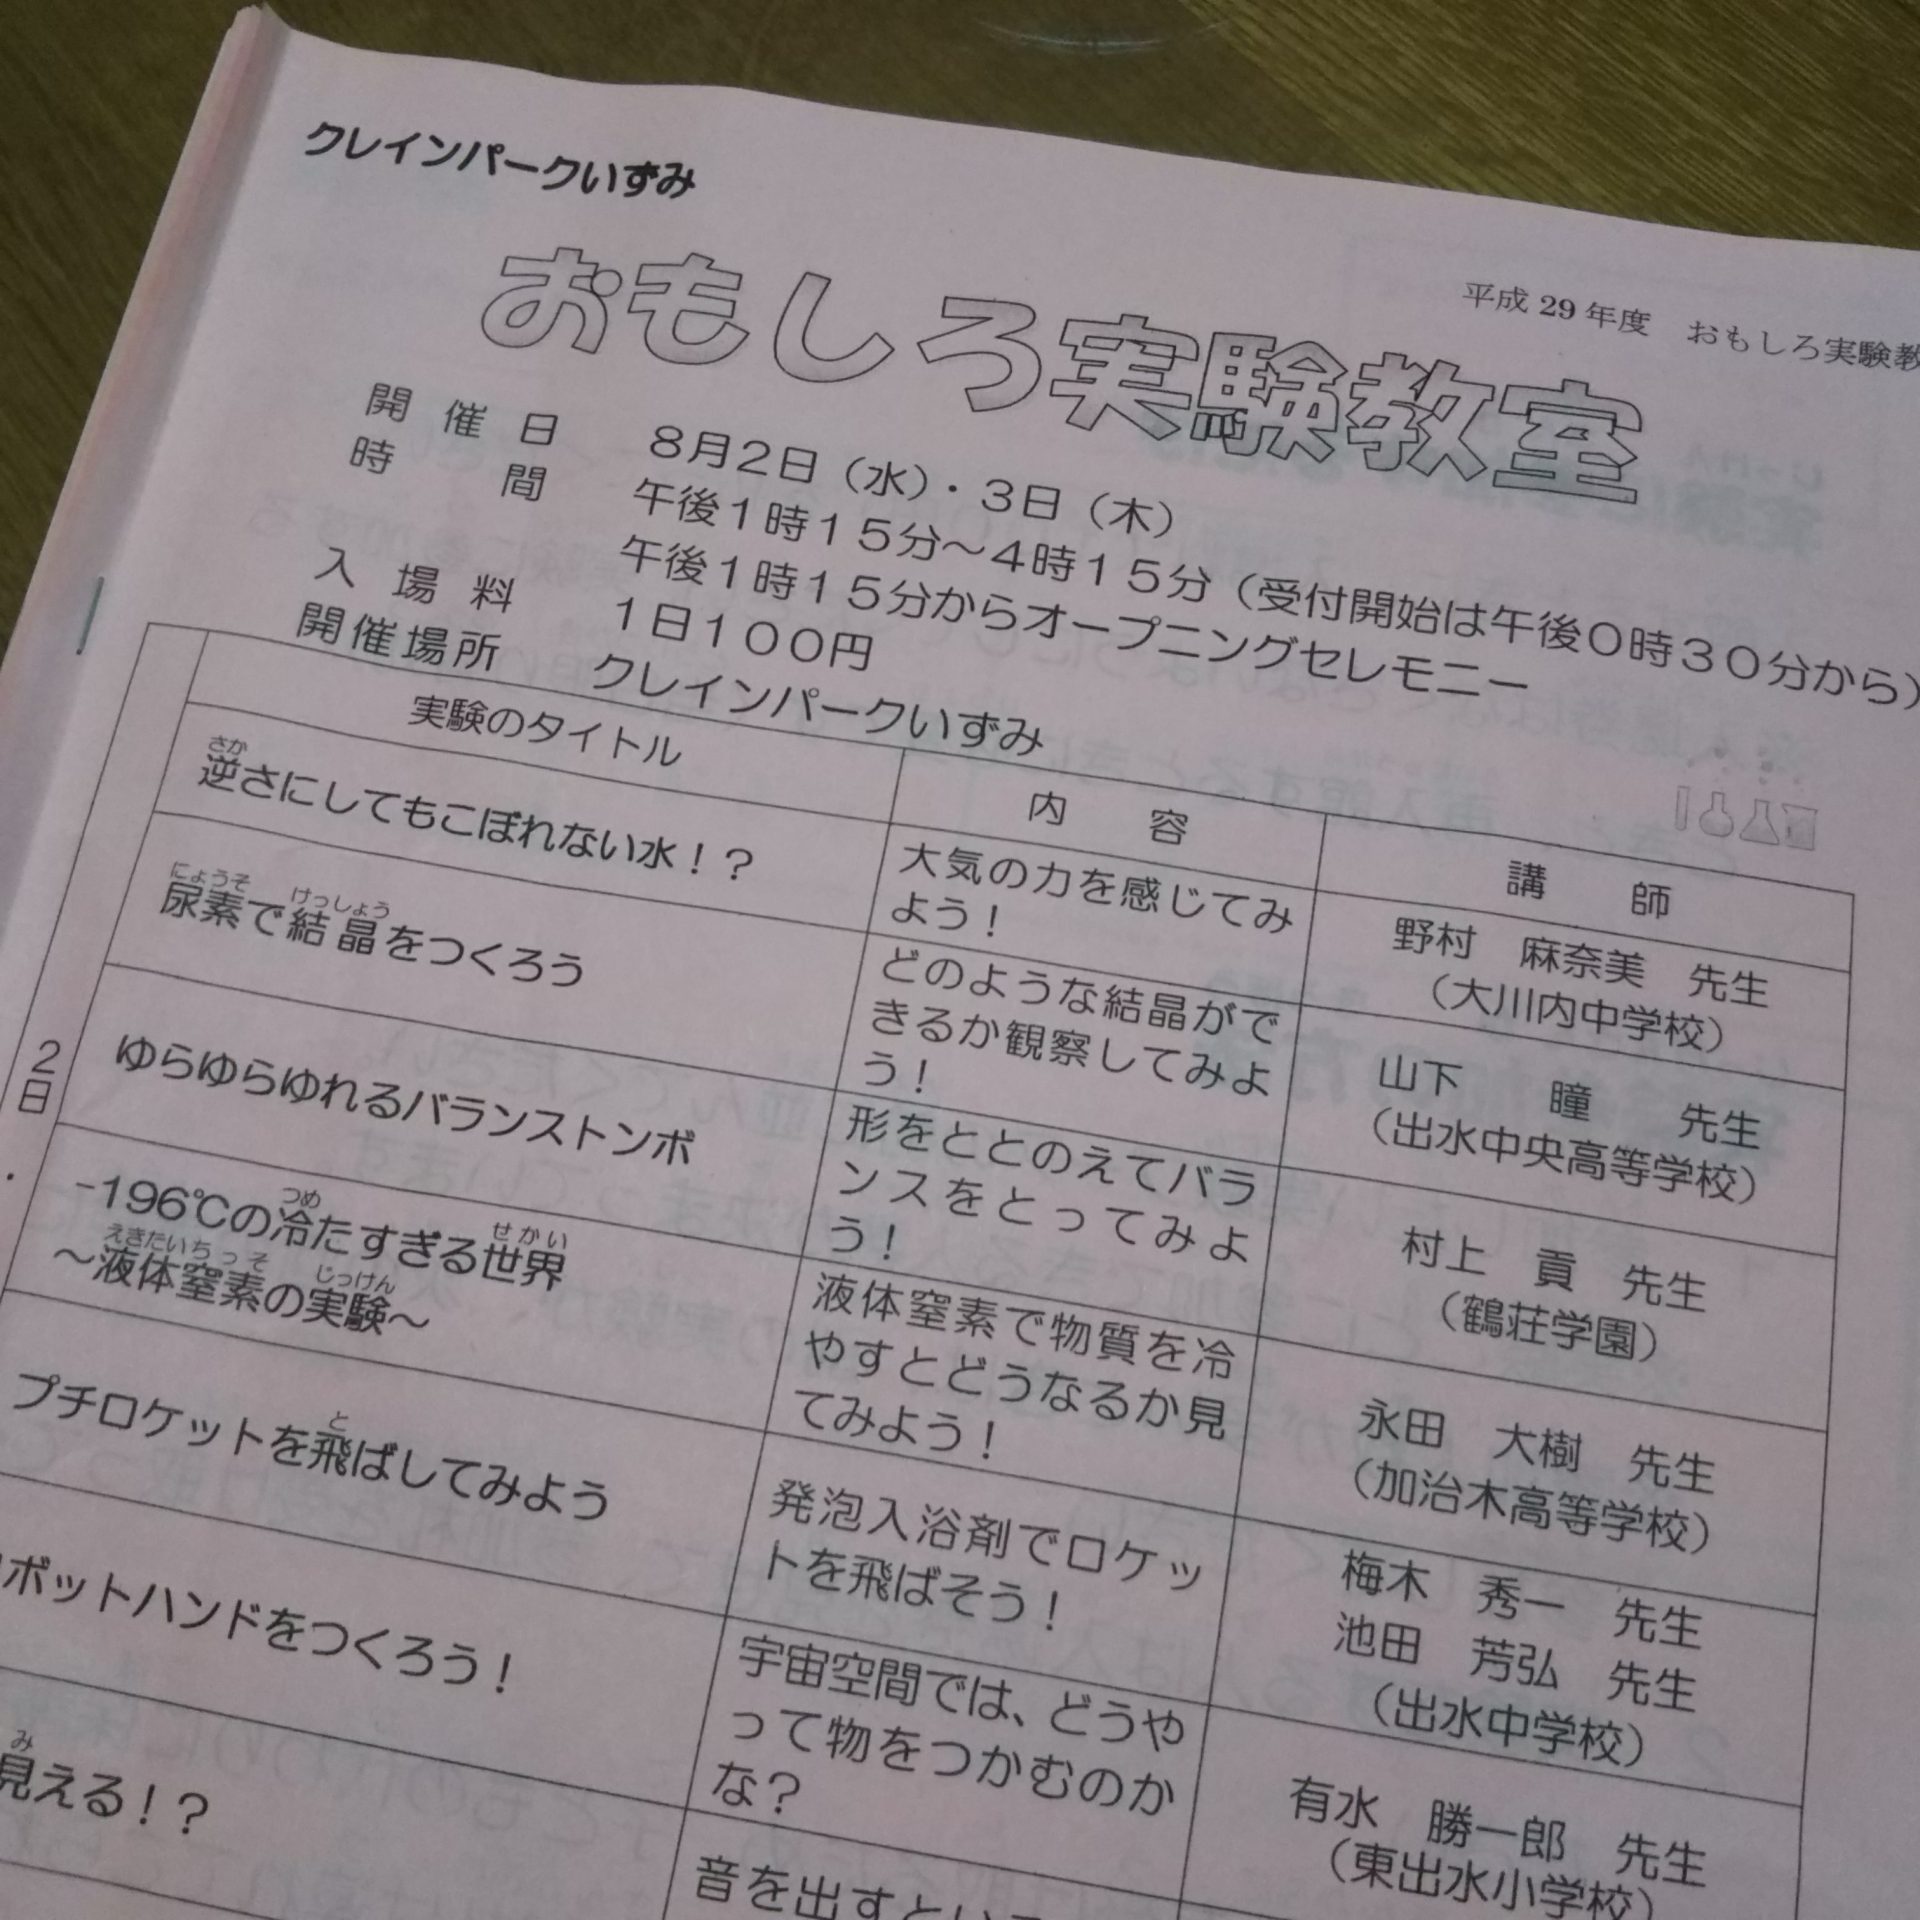 クレインパークいずみ
平成 29 年度　おもしろ実験教
おもしろ実験教室
開催日　８月２日（水）・３日（木）
時間　午後１時１５分～４時１５分（受付開始は午後０時３０分から）
午後１時１５分からオープニングセレモニー
入場料　１日１００円
開催場所　クレインパークいずみ
実験のタイトル
内容
講師
2日
さか
逆さにしてもこぼれない水！？
大気の力を感じてみ
よう！
野村　麻奈美　先生
（大川内中学校）
にょうそ　けっしょう
尿素で結晶をつくろう
どのような結晶がで
きるか観察してみよ
う！
山下　瞳　先生
（出水中央高等学校）
ゆらゆらゆれるバランストンボ
形をととのえてバラ
ンスをとってみよ
う！
村上　貢　先生
（鶴荘学園）
つめ　せかい
-196℃の冷たすぎる世界
えきたいちっそ　じっけん
～液体窒素の実験～
液体窒素で物質を冷
やすとどうなるか見
てみよう！
永田　大樹　先生
（加治木高等学校）
と
プチロケットを飛ばしてみよう
発泡入浴剤でロケッ
トを飛ばそう！
梅木　秀一　先生
池田　芳弘　先生
（出水中学校）
ボットハンドをつくろう！
宇宙空間では、どうや
って物をつかむのか
な？
有水　勝一郎　先生
（東出水小学校）
み
見える！？
音を出すとい